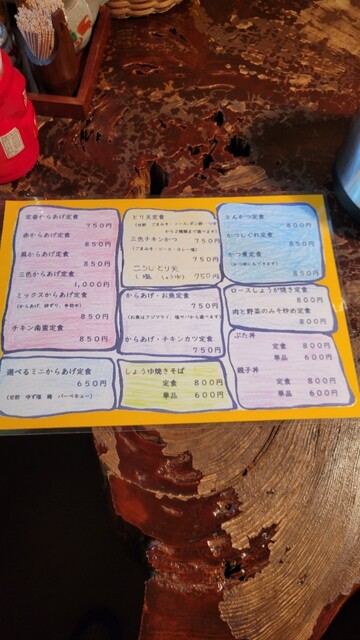 定番からあげ定食
750円
赤からあげ定食
850円
風からあげ定食
850円
三色からあげ定食
1,000円
ミックスからあげ定食
850円
チキン南蛮定食
850円
選べるミニからあげ定食
650円
とり天定食
750円
三色チキンかつ
(ごまみそ・ソース・カレー塩)
750円
こうじとり天
(塩 しょうゆ) 750円
からあげ・お魚定食
750円
からあげ・チキンカツ定食
750円
しょうゆ焼きそば
定食 800円
単品 600円
とんかつ定食
800円
かつしぐれ定食
850円
かつ煮定食
850円
ロースしょうが焼き定食
800円
肉と野菜のみそ炒め定食
800円
ぶた丼
定食 800円
単品 600円
親子丼
定食 800円
単品 600円